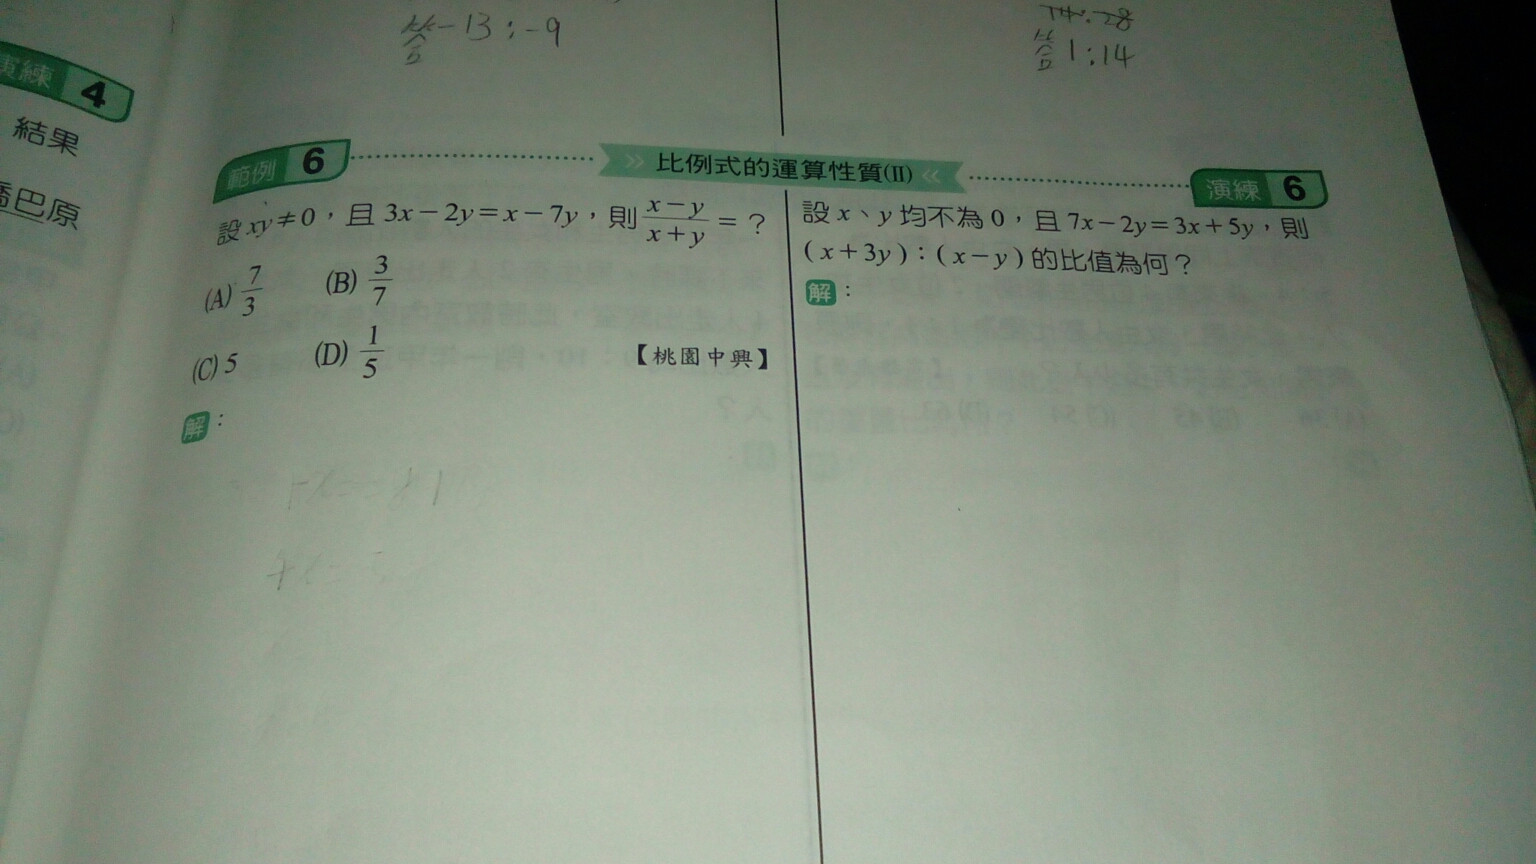 答 -13:-9
14:28
答 1:14
演練 4
結果
喬巴原
範例 6
» 比例式的運算性質(II) «
演練 6
設 xy≠0,且 3x-2y=x-7y,則 \frac{x-y}{x+y} = ?
(A) \frac{7}{3} (B) \frac{3}{7}
(C) 5 (D) \frac{1}{5} 【桃園中興】
解:
設 x、y 均不為 0,且 7x-2y=3x+5y,則
(x+3y):(x-y)的比值為何?
解: